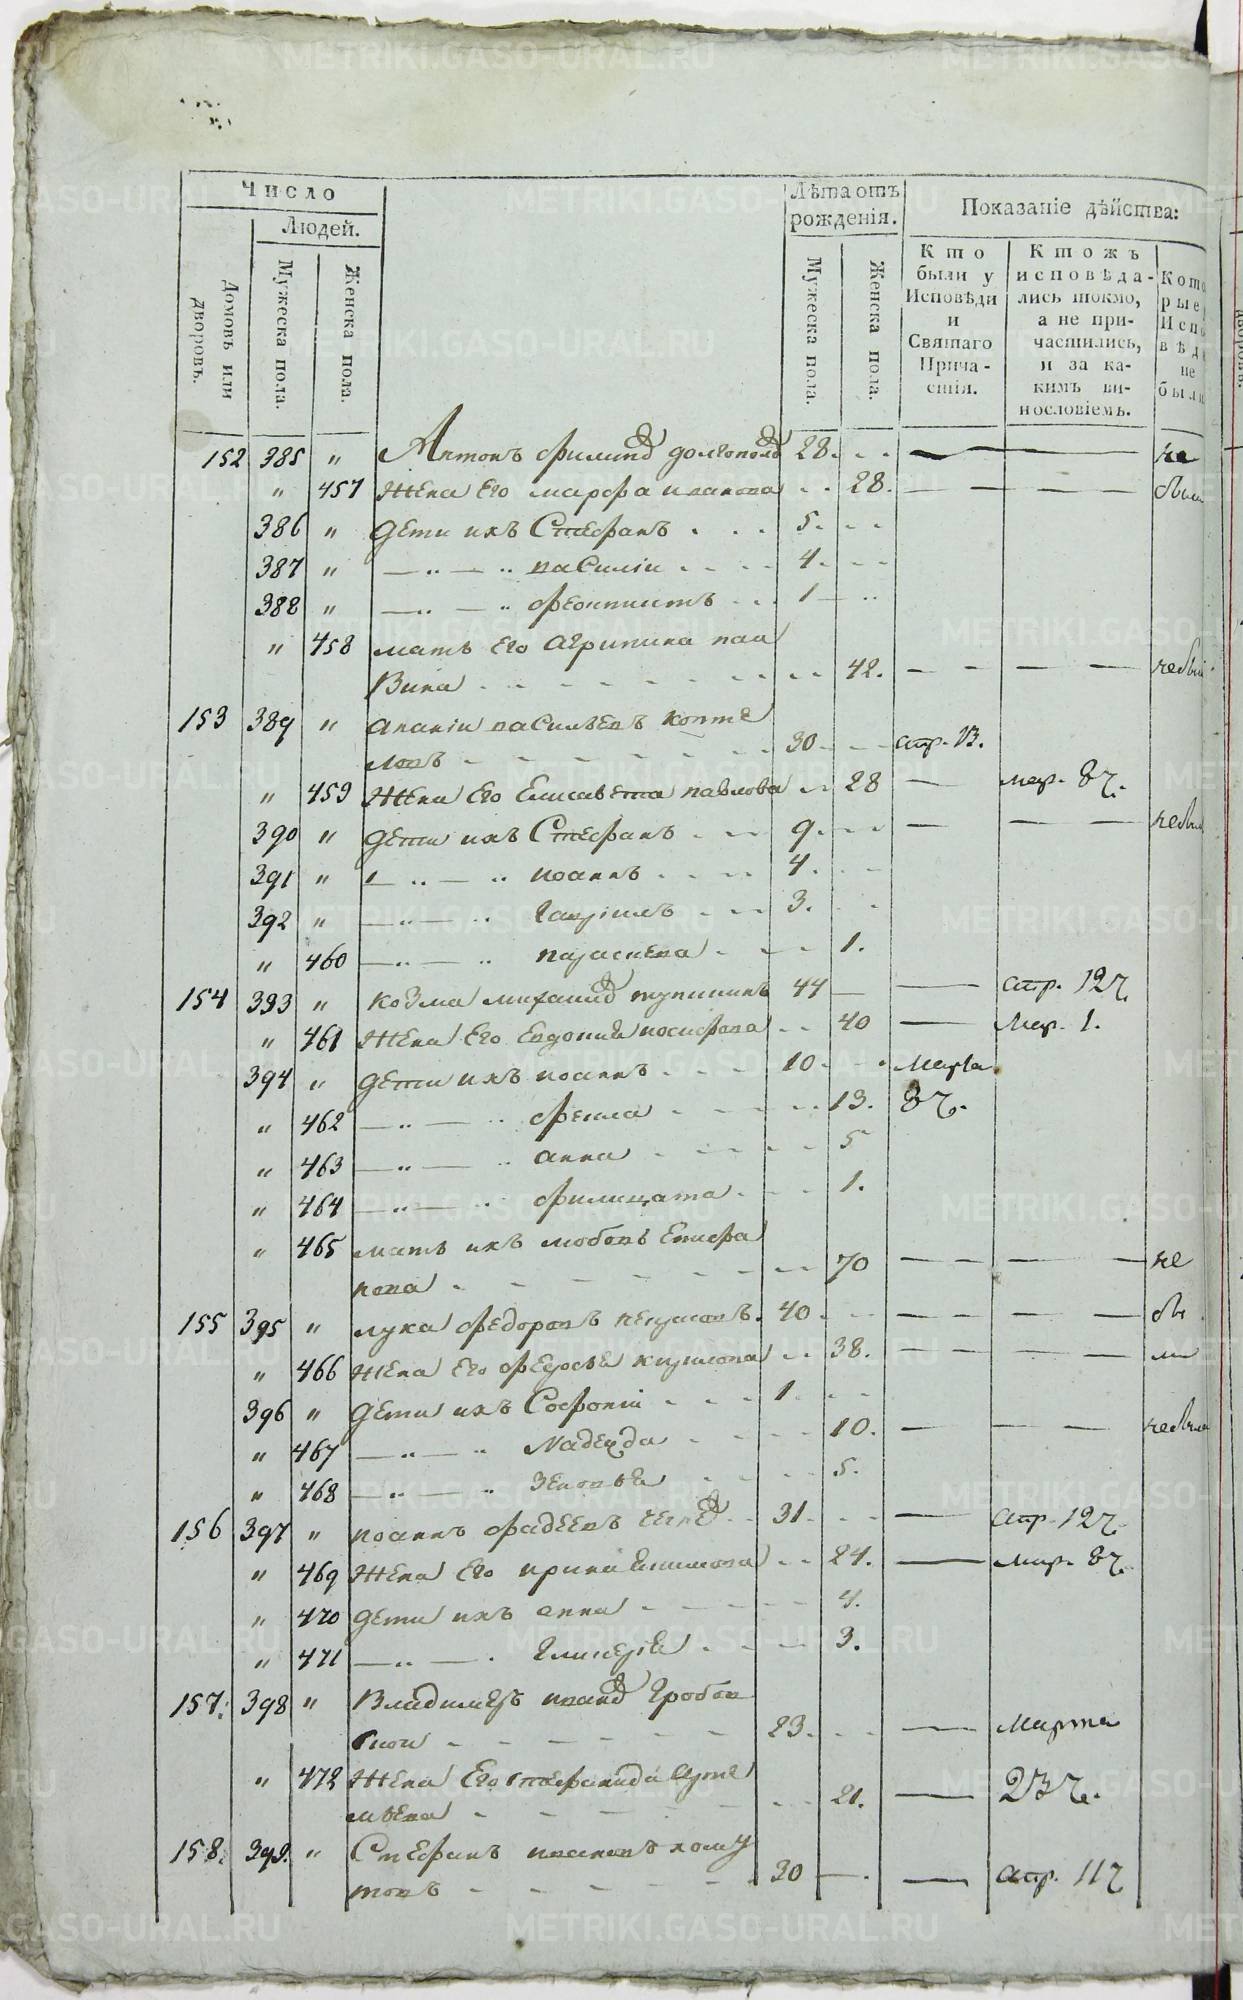 Число
Людей.
Домовъ или дворовъ.
Мужеска пола.
Женска пола.
Лѣта отъ рожденія.
Мужеска пола.
Женска пола.
Показаніе дѣйства:
Кто были у Исповѣди и Святаго Прича-стія.
Ктожъ исповѣда-лись токмо, а не при-частились, и за ка-кимъ ви-нословіемъ.
Кото рые Испо вѣд не был
152 385 " Антонъ 28. не
" 457 Жена Его марфа иванова 28. были
386 " дети ихъ Стефанъ 5.
387 " василіи 4.
388 " феоктистъ 1
" 458 мать Его Агрипина
42. небыл
153 389 " ананіи васильевъ копте
ловъ 30 апр. 13.
" 459 Жена Его Елисавета павлова 28 мар. 8 ч.
390 " дети ихъ Стефанъ 9. небыл
391 " иоаннъ 4.
392 " Гавріилъ 3.
" 460 параскева 1.
154 393 " козма 44 апр. 12 ч.
" 461 Жена Его Евдокия иосифова 40 Мар. 1.
394 " дети ихъ иоаннъ 10. Марта
" 462 фекла 13. 8 ч.
" 463 анна 5
" 464 филицата 1.
" 465 мать ихъ любовь Епифа
нова 70 не
155 395 " лука федоровъ 40. бы
" 466 Жена Его 38. ли
396 " дети ихъ Софоніи 1.
" 467 Надежда 10. небыли
" 468 Зеновья 5.
156 397 " иоаннъ фадеевъ 31 апр. 12 ч.
" 469 Жена Его ирина 24. мар. 8 ч.
" 470 дети ихъ анна 4.
" 471 Гликерья 3.
157. 398 " Владимеръ
23. Марта
" 472 Жена Его стефанида
21. 23 ч.
158. 399. " Стефанъ ивановъ хому
товъ 30 апр. 11 ч
METRIKI.GASO-URAL.RU